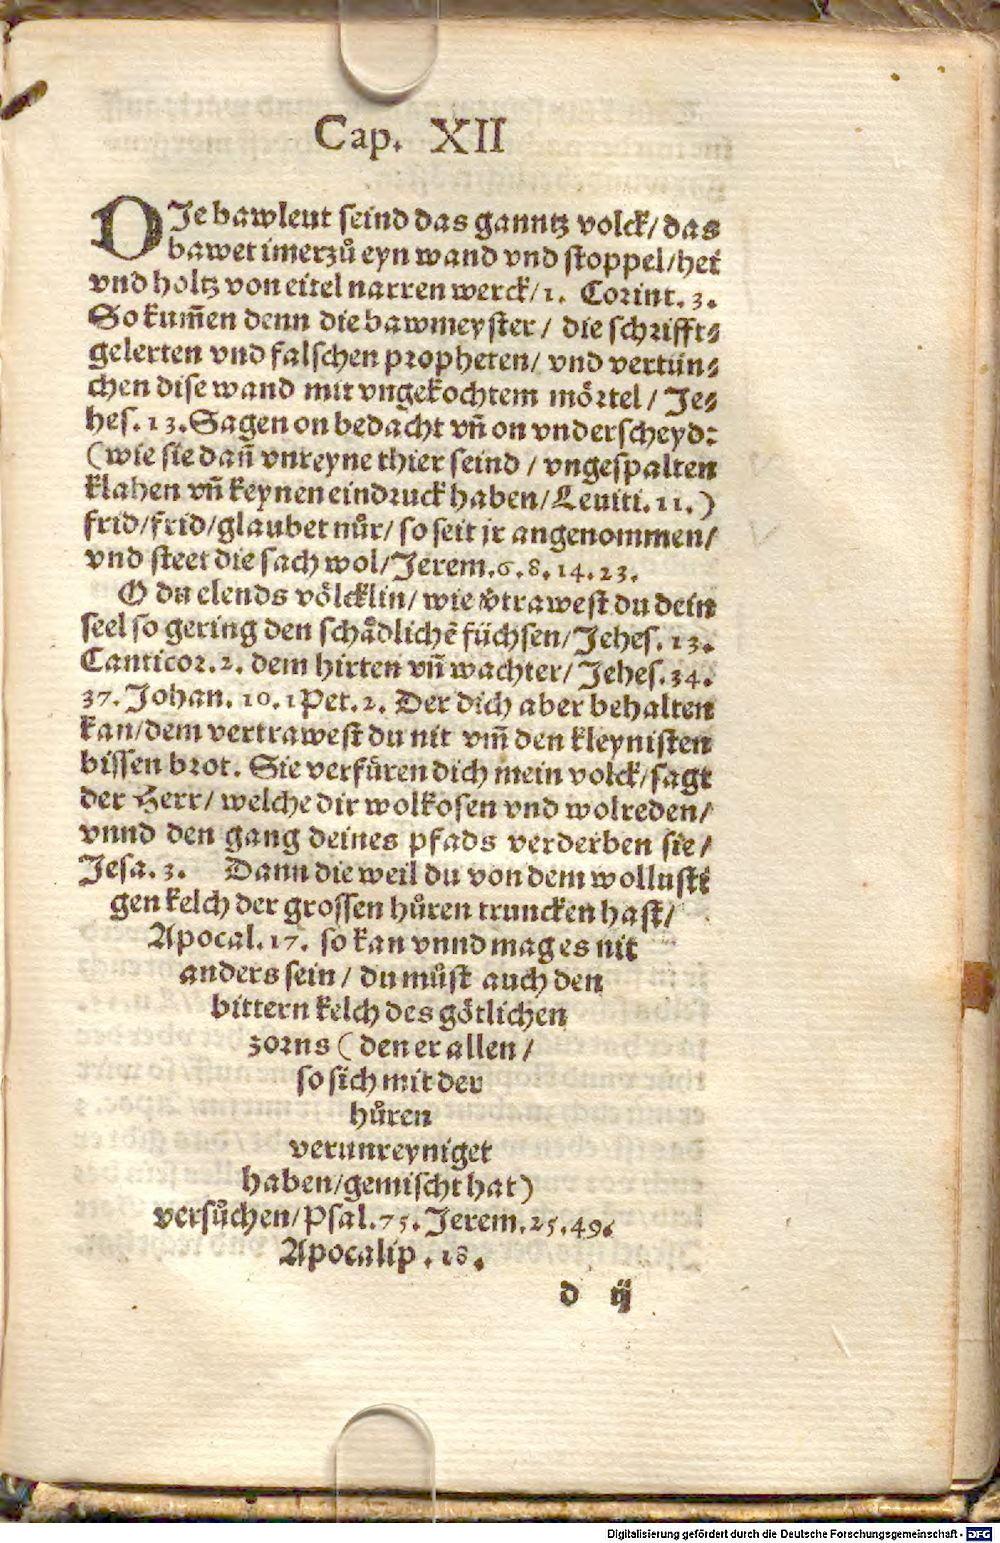 Cap. XII
DIe bawleut seind das ganntz volck/das
bawet imerzů eyn wand vnd stoppel/hei
vnd holtz von eitel narren werck/1. Corint. 3.
So kum̄en denn die bawmeyster/ die schrifft⸗
gelerten vnd falschen propheten/ vnd vertün⸗
chen dise wand mit vngekochtem mörtel/ Je⸗
hes. 13. Sagen on bedacht vn̄ on vnderscheyd:
(wie sie dan̄ vnreyne thier seind / vngespalten
klahen vn̄ keynen eindruck haben/Leuiti. 11.)
frid/frid/glaubet nůr/ so seit jr angenommen/
vnd steet die sach wol/Jerem. 6. 8. 14. 23.
O du elends völcklin/ wie v̊trawest du dein
seel so gering den schådlichē füchsen/Jehes. 13.
Canticor. 2. dem hirten vn̄ wachter/ Jehes. 34.
37. Johan. 10. 1 Pet. 2. Der dich aber behalten
kan/dem vertrawest du nit vm̄ den kleynisten
bissen brot. Sie verfüren dich mein volck/sagt
der Herr/ welche dir wolkosen vnd wolreden/
vnnd den gang deines pfads verderben sie/
Jesa. 3. Dann die weil du von dem wollusti
gen kelch der grossen hůren truncken hast/
Apocal. 17. so kan vnnd mag es nit
anders sein/ du můst auch den
bittern kelch des götlichen
zorns ( den er allen /
so sich mit der
hůren
verunreyniget
haben/gemischt hat)
versůchen/Psal. 75. Jerem. 25. 49.
Apocalip . 18.
d ij
Digitalisierung gefördert durch die Deutsche Forschungsgemeinschaft - DFG